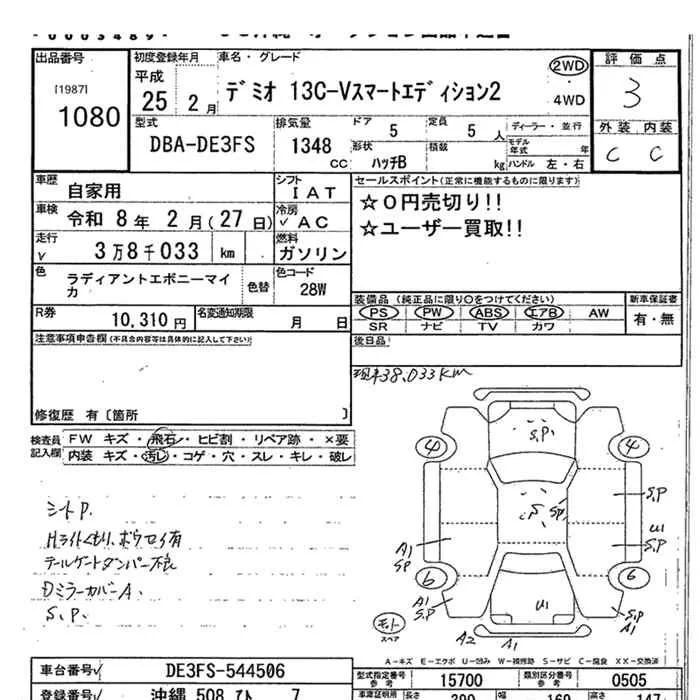 出品番号
[1987]
1080
初度登録年月
平成
25 2月
車名・グレード
デミオ 13C-Vスマートエディション2
2WD
・
4WD
評価点
3
外装 内装
C C
型式
DBA-DE3FS
排気量
1348
CC
ドア 5
定員 5 人
形状 ハッチB
積載 kg
ディーラー・並行
モデル年式 年
ハンドル 左・右
車歴 自家用
シフト
I A T
車検 令和 8年 2月(27日)
冷房
✓ A C
走行
✓ 3万8千033 km
燃料
ガソリン
色 ラディアントエボニーマイカ
色替
色コード
28W
R券
10,310 円
名変通知期限
月 日
セールスポイント(正常に機能するものに限ります)
☆0円売切り!!
☆ユーザー買取!!
装備品 (純正品に限り○をつけてください)
PS PW ABS エアB AW
SR ナビ TV カワ
新車保証書
有・無
後日品
注意事項申告欄(不具合内容等は具体的に記入して下さい)
修復歴 有〔箇所 〕
検査員記入欄
FW キズ・飛石・ヒビ割・リペア跡・×要
内装 キズ・汚レ・コゲ・穴・スレ・キレ・破レ
現車38,033km
シートP.
Hライトくもり、ボウセイ有
テールゲートダンパー不良
DミラーカバーA.
S.P.
S.P.
4 4
S.P
S.P
SP
U1
S.P
A1
SP
6 6
A1
S.P
U1
S.P
A1
スペア
A2 A1
A-キズ E-エクボ U-凹み W-補修跡 S-サビ C-腐食 XX-交換済
車台番号✓ DE3FS-544506
型式指定番号
参考
15700
類別区分番号
参考
0505
登録番号 沖縄 508